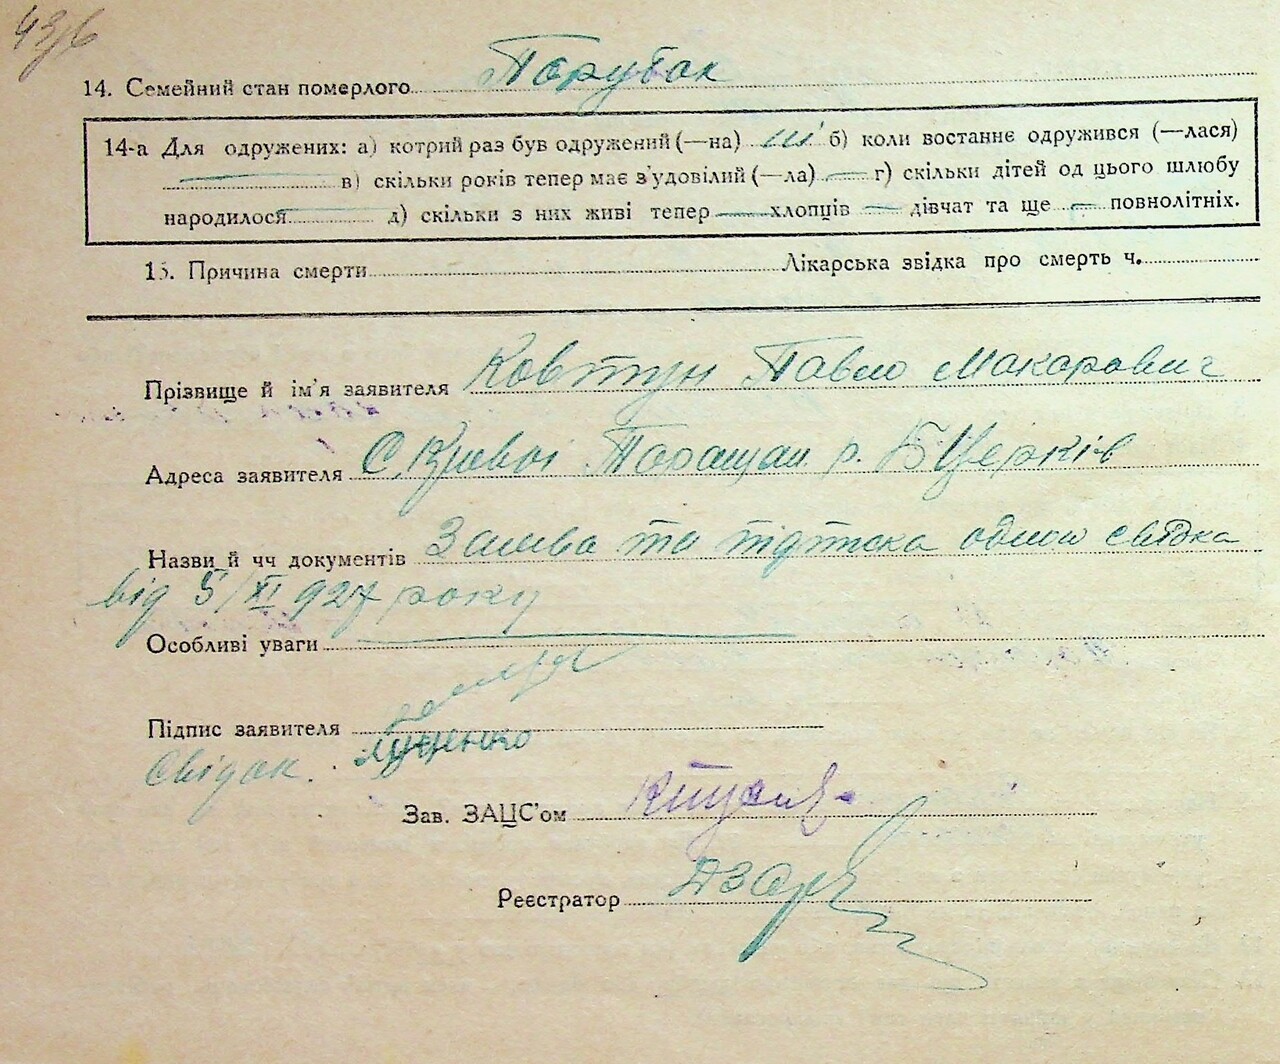 43/6
14. Семейний стан померлого Парубок
14-а Для одружених: а) котрий раз був одружений (—на) б) коли востаннє одружився (—лася)
в) скільки років тепер має з'удовілий (—ла) — г) скільки дітей од цього шлюбу
народилося д) скільки з них живі тепер — хлопців — дівчат та ще — повнолітніх.
15. Причина смерти Лікарська звідка про смерть ч.
Прізвище й ім'я заявителя Ковтун Павло Макарович
Адреса заявителя С. Кривої Таращан. р. Б Церків
Назви й чч документів Заява та підписка одного свідка
від 5/XI 927 року
Особливі уваги
Підпис заявителя
Свідок. Луценко
Зав. ЗАЦС'ом
Реєстратор